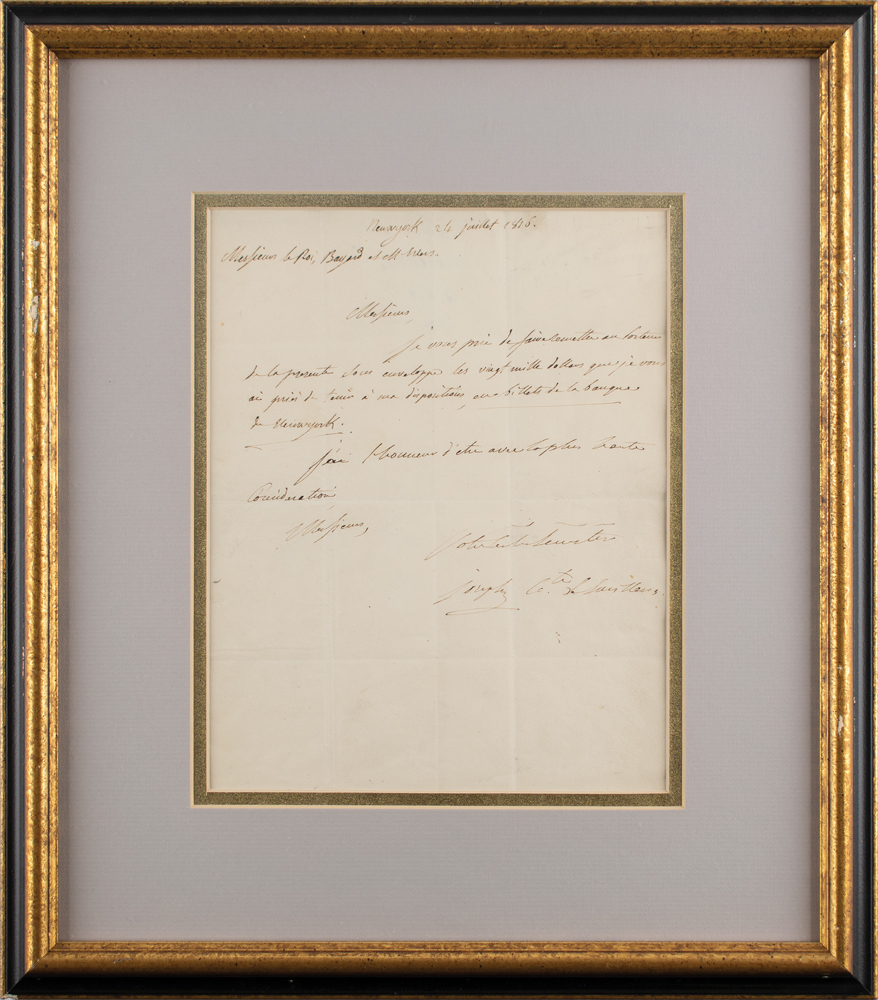 Newyork 24 juillet 1816.
Messieurs le Roi, Bayard et M- Evers.
Messieurs,
je vous prie de faire remettre au porteur
de la presente sous enveloppe les vingt mille dollars que je vous
ai prié de tenir à ma disposition, en billets de la banque
de Newyork.
j'ai l'honneur d'etre avec la plus haute
Consideration
Messieurs,
Votre
joseph Cte de Survilliers.